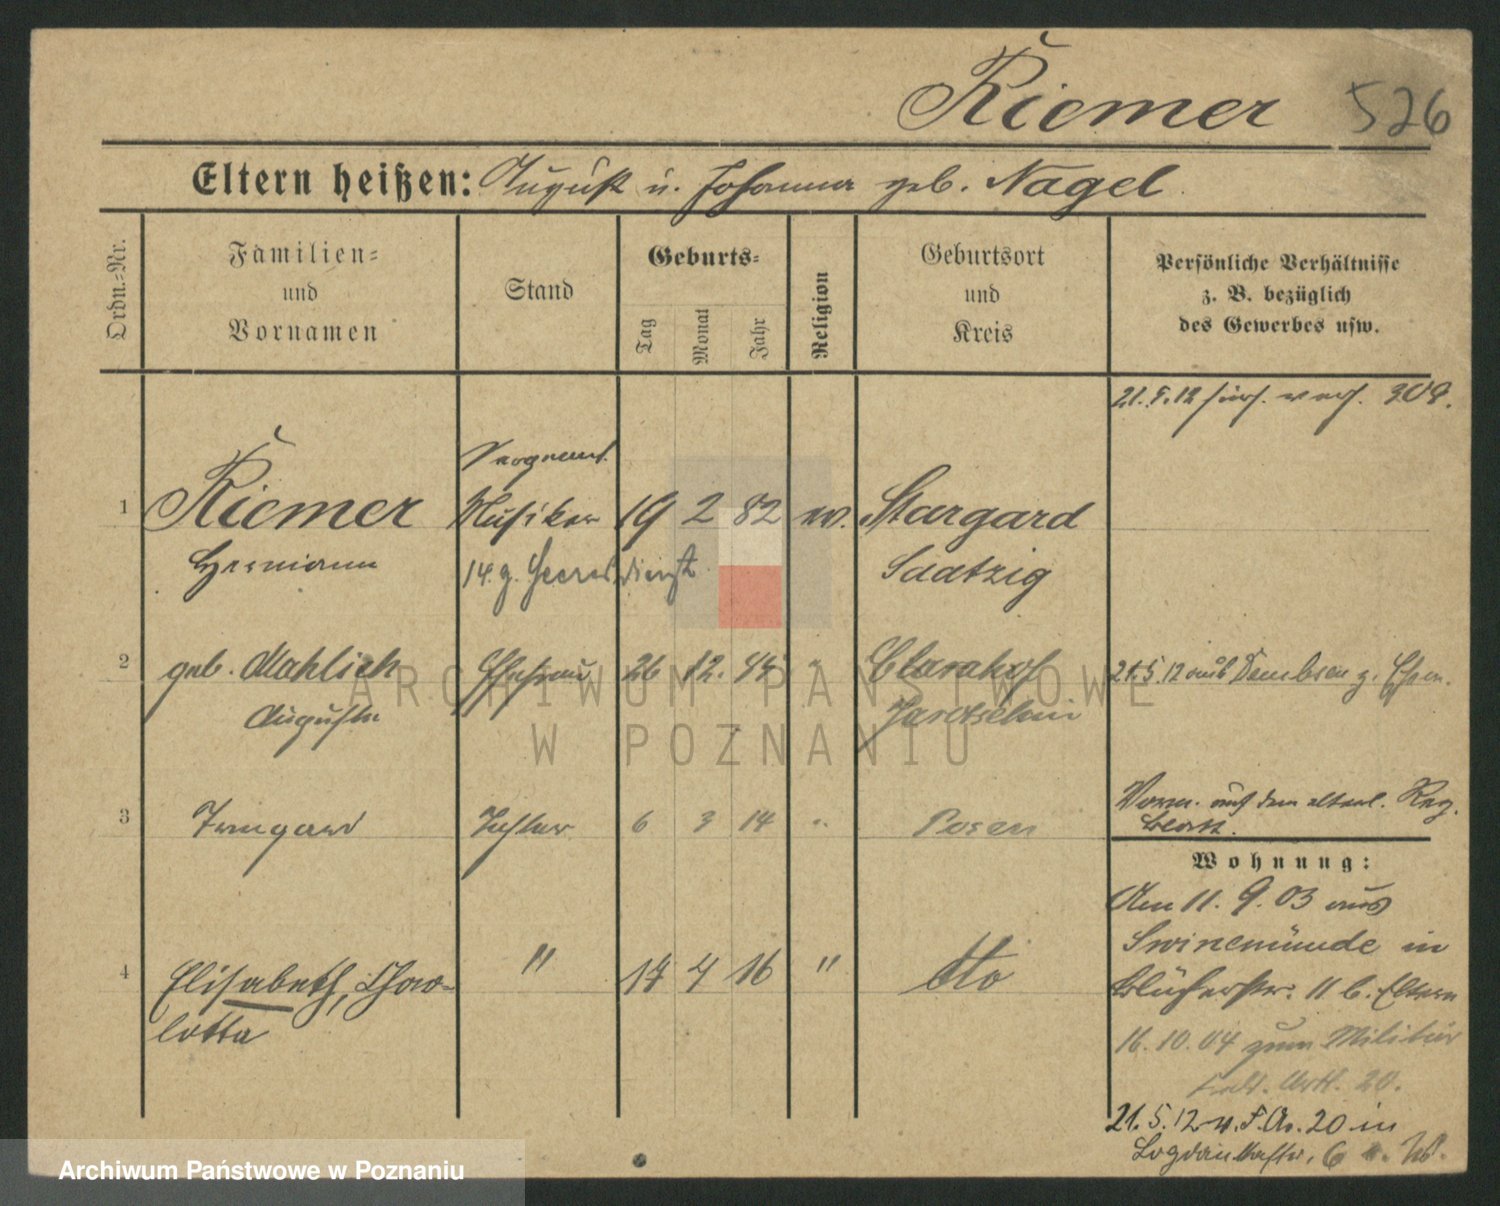 Riemer 526
Eltern heißen: August u. Johanna geb. Nagel.
Ordn.=Nr.
Familien=
und
Vornamen
Stand
Geburts=
Tag
Monat
Jahr
Religion
Geburtsort
und
Kreis
Persönliche Verhältnisse
z. B. bezüglich
des Gewerbes usw.
21.5.12
1 Riemer Musiker 19 2 82 ev. Stargard
Hermann 14. z. Heeresdienst Saatzig
2 geb. Mahlich Ehefrau 26 12. " Clarahof
Auguste Jarotschin
21.5.12 aus Dembsen z. Ehem.
3 Irmgard Tochter 6 3 14 " Posen
Vorm. auf dem elterl. Reg.
blatt.
4 Elisabeth, Char-
lotta
" 4 16 " dto
Wohnung:
Am 11. 9. 03 aus
Swinemünde in
Blücherstr. 11 b. Eltern
16. 10. 04 zum Militär
Feld. Artl. 20.
21. 5. 12 v. F. Ar. 20 in
6
ARCHIWUM PAŃSTWOWE
W POZNANIU
Archiwum Państwowe w Poznaniu